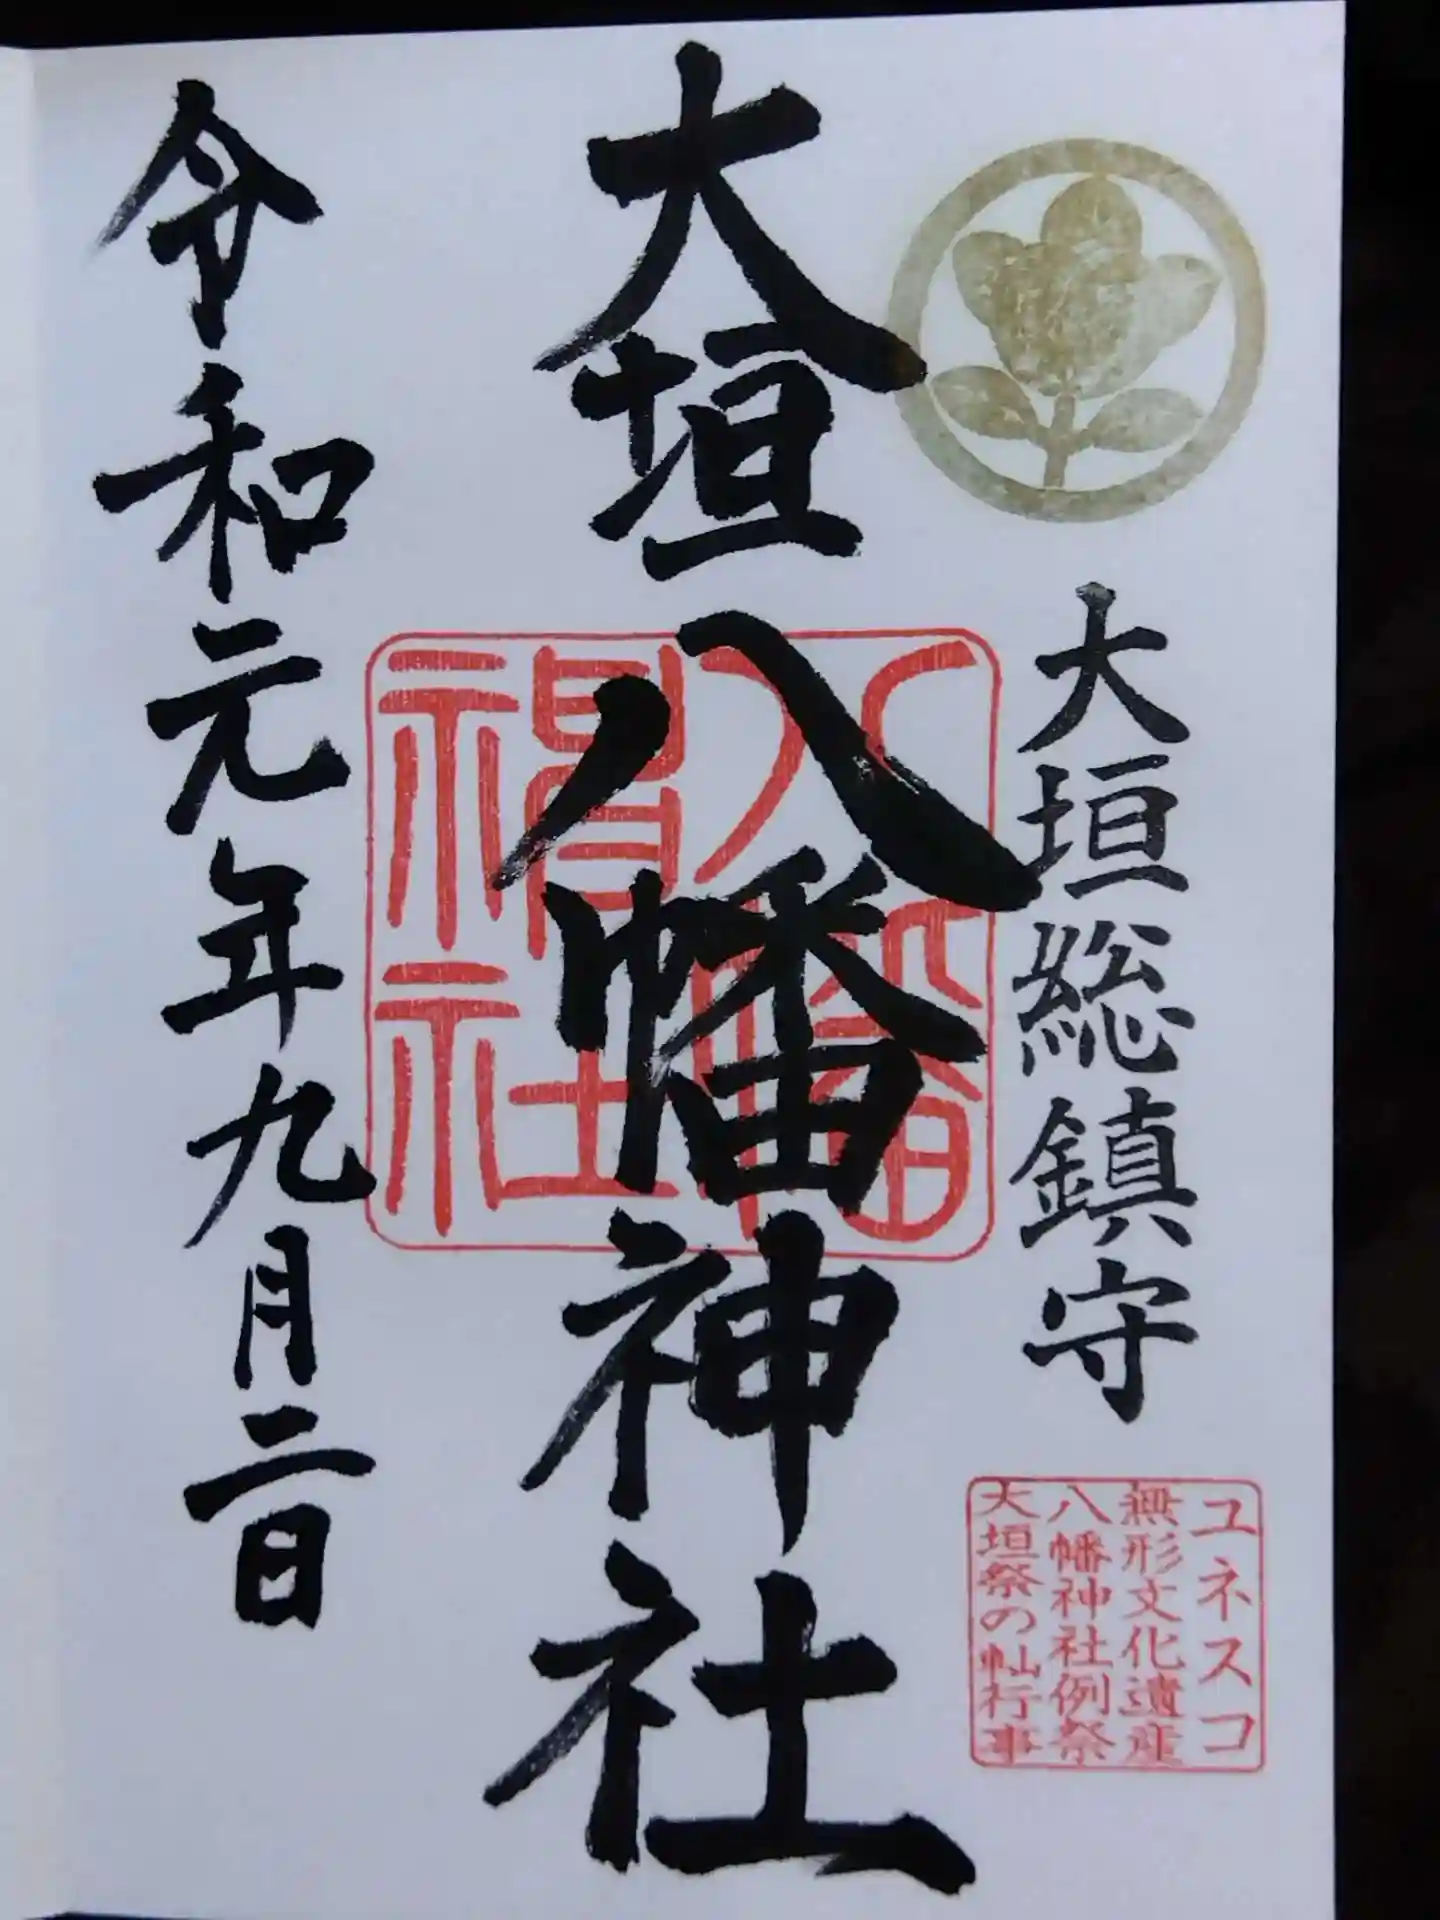 大垣総鎮守
ユネスコ
無形文化遺産
八幡神社例祭
大垣祭の𨊂行事
大垣八幡神社
八幡神社
令和元年九月二日